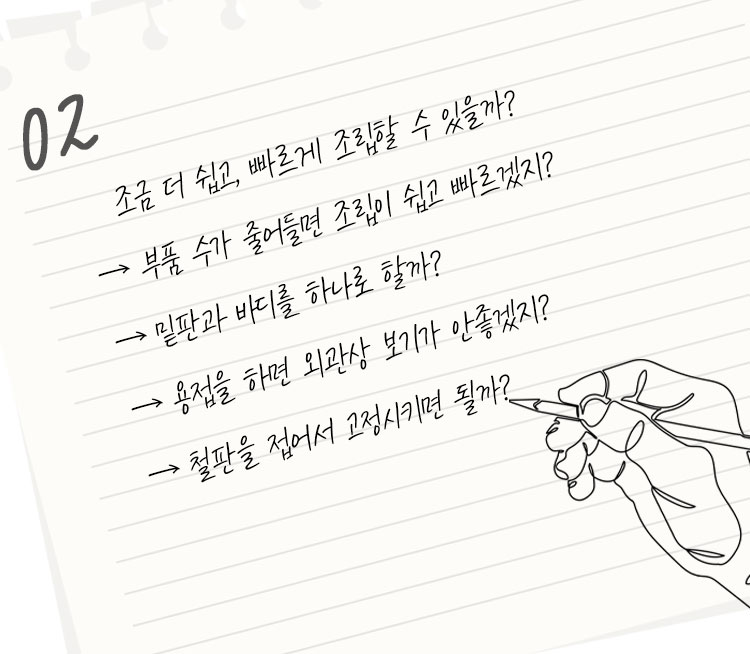 02
조금 더 쉽고, 빠르게 조립할 수 있을까?
→ 부품 수가 줄어들면 조립이 쉽고 빠르겠지?
→ 밑판과 바디를 하나로 할까?
→ 용접을 하면 외관상 보기가 안좋겠지?
→ 철판을 접어서 고정시키면 될까?